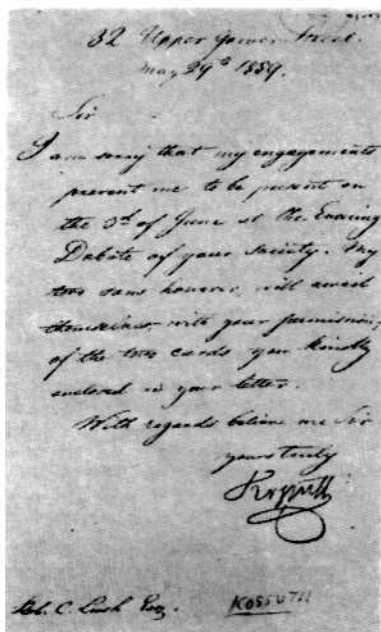 32 Upper Gower Street.
May 29th 1859.
Sir
I am sorry that my engagements
prevent me to be present on
the 3d of June at the Evening
Debate of your Society. My
two sons however, will avail
themselves with your permission,
of the two cards you kindly
enclosed in your letter.
With regards believe me Sir
yours truly
Kossuth
C. Lush Esq.
KOSSUTH